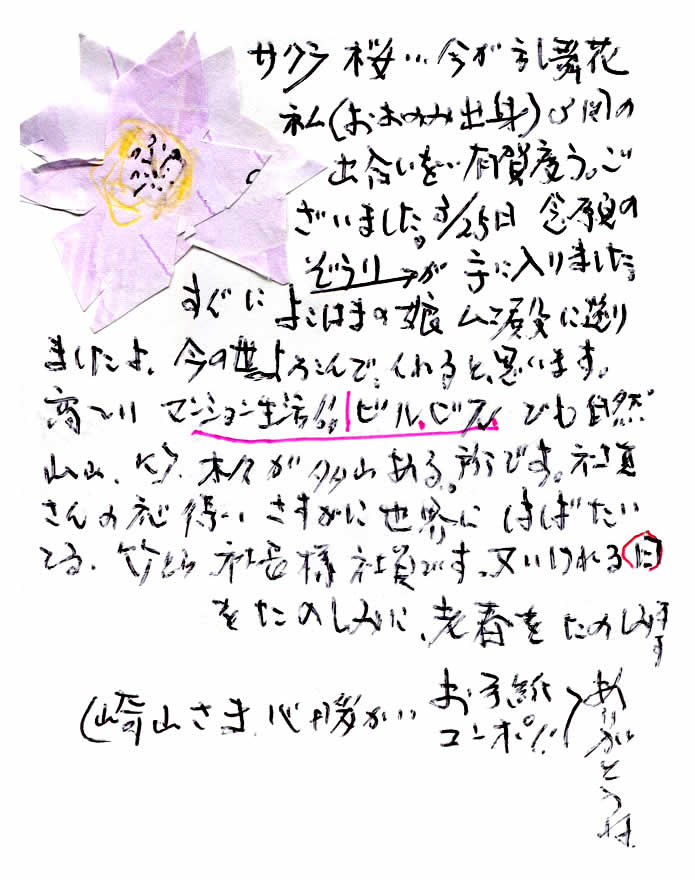 サクラ 桜…今が乱舞花
私(よまのみ出身)
出合いを…有賀度う。ご
ざいました。3/25日 念願の
ぞうり→が 手に入りました。
すぐに よこはまの娘 ムコ殿に送り
ましたよ、今の世よろこんで、くれると、思います。
マンション生活 ビル、ビル、でも自然
山山、竹、木々が多山ある。所です。社員
さんの心得…さすがに世界にはばたい
てる。竹とら 社長様 社員です、又いけれる日
をたのしみに、老春をたのしみます
(崎山さま、心暖かい お手紙
コンポ!!)
ありがとうね。